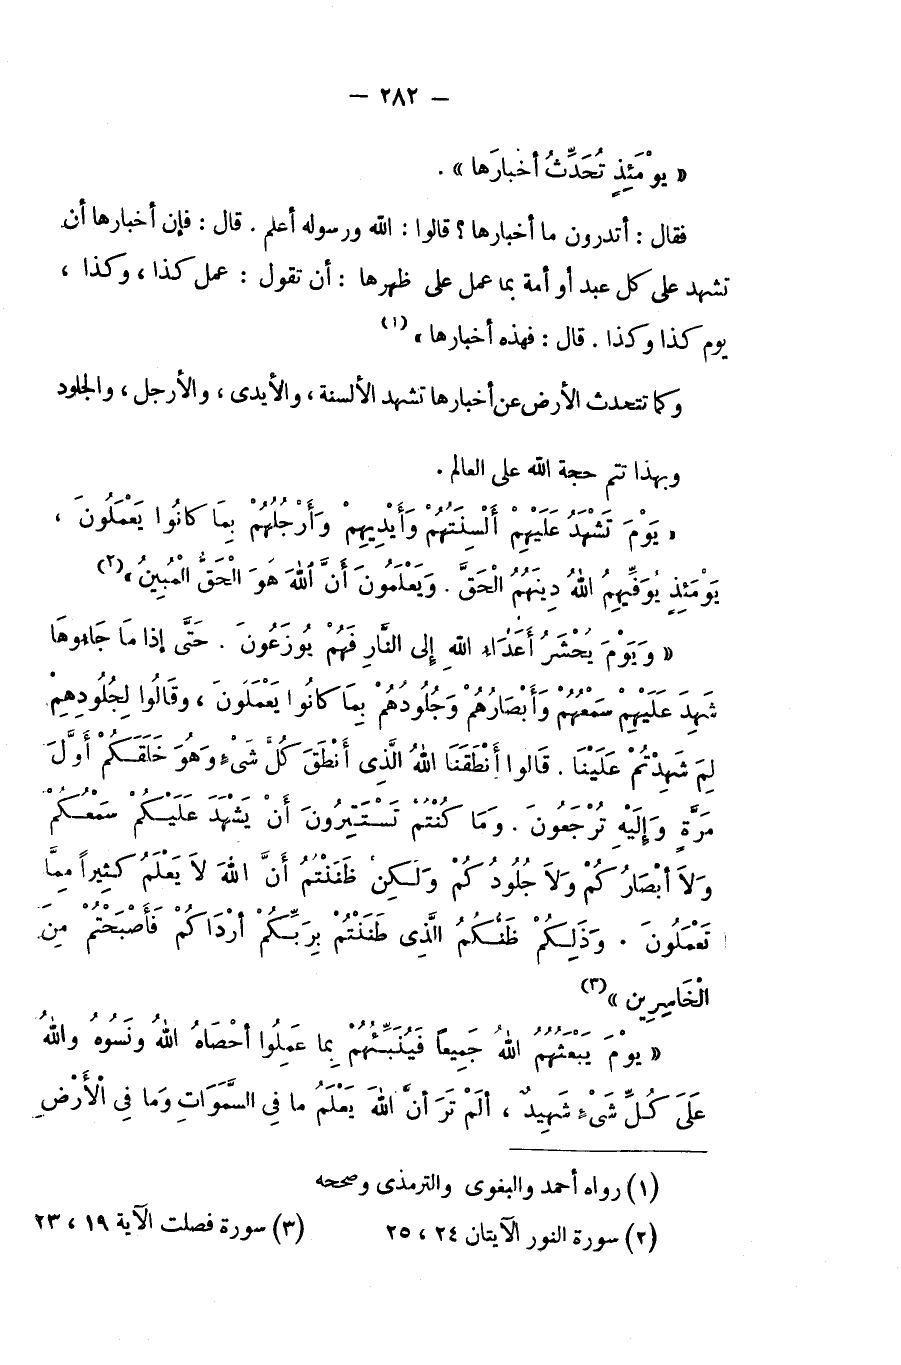 — ٢٨٢ —
« يوْمَئِذٍ تُحَدِّثُ أخْبارَها » .
فقال : أتدرون ما أخبارها ؟ قالوا : الله ورسوله أعلم . قال : فإن أخبارها أن
تشهد على كل عبد أو أمة بما عمل على ظهرها : أن تقول : عمل كذا ، وكذا ،
يوم كذا وكذا . قال : فهذه أخبارها » (١)
وكما تتحدث الأرض عن أخبارها تشهد الألسنة ، والأيدى ، والأرجل ، والجلود
وبهذا تتم حجة الله على العالم .
« يَوْمَ تَشْهَدُ عَلَيْهِمْ أَلْسِنَتُهُمْ وَأَيْدِيهِمْ وَأَرْجُلُهُمْ بِمَا كانُوا يَعْمَلُونَ ،
يَوْمَئِذٍ يُوَفِّيهِمُ اللهُ دِينَهُمُ الْحَقَّ . وَيَعْلَمُونَ أَنَّ اللهَ هُوَ الْحَقُّ الْمُبِينُ » (٢)
« وَيَوْمَ يُحْشَرُ أَعْدَاء اللهِ إِلى النَّارِ فَهُمْ يُوزَعُونَ . حَتَّى إذا مَا جَاءوهَا
شَهِدَ عَلَيْهِمْ سَمْعُهُمْ وَأَبْصَارُهُمْ وَجُلُودُهُمْ بِمَا كانُوا يَعْمَلُونَ ، وقَالُوا لِجُلُودِهِمْ
لِمَ شَهِدْتُمْ عَلَيْنَا . قَالوا أَنْطَقَنَا اللهُ الَّذِى أَنْطَقَ كُلَّ شَىْءٍ وَهُوَ خَلَقَكُمْ أَوَّلَ
مَرَّةٍ وَإِلَيْهِ تُرْجَعُونَ . وَمَا كُنْتُمْ تَسْتَتِرُونَ أَنْ يَشْهَدَ عَلَيْكُمْ سَمْعُكُمْ
وَلاَ أبْصَارُكُمْ وَلاَ جُلُودُكُمْ وَلَكِن ظَنَنْتُمُ أَنَّ اللهَ لاَ يَعْلَمُ كَثِيراً مِمَّا
تَعْمَلُونَ . وَذَلِكُمْ ظَنُّكُمُ الَّذِى ظَنَنْتُمْ بِرَبِّكُمْ أرْدَاكُمْ فَأَصْبَحْتُمْ مِنَ
الْخَاسِرِين » (٣)
« يوْمَ يَبْعَثُهُمُ اللهُ جَمِيعاً فَيُنَبِّئُهُمْ بِما عَمِلُوا أحْصَاهُ اللهُ ونَسُوهُ واللهُ
عَلَى كُلِّ شَىْءٍ شَهِيدٌ ، ألَمْ تَرَ أنَّ اللهَ يَعْلَمُ ما فِى السَّمَوَاتِ وَما فِى الْأَرْضِ
(١) رواه أحمد والبغوى والترمذى وصححه
(٢) سورة النور الآيتان ٢٤ ، ٢٥ (٣) سورة فصلت الآية ١٩ ، ٢٣